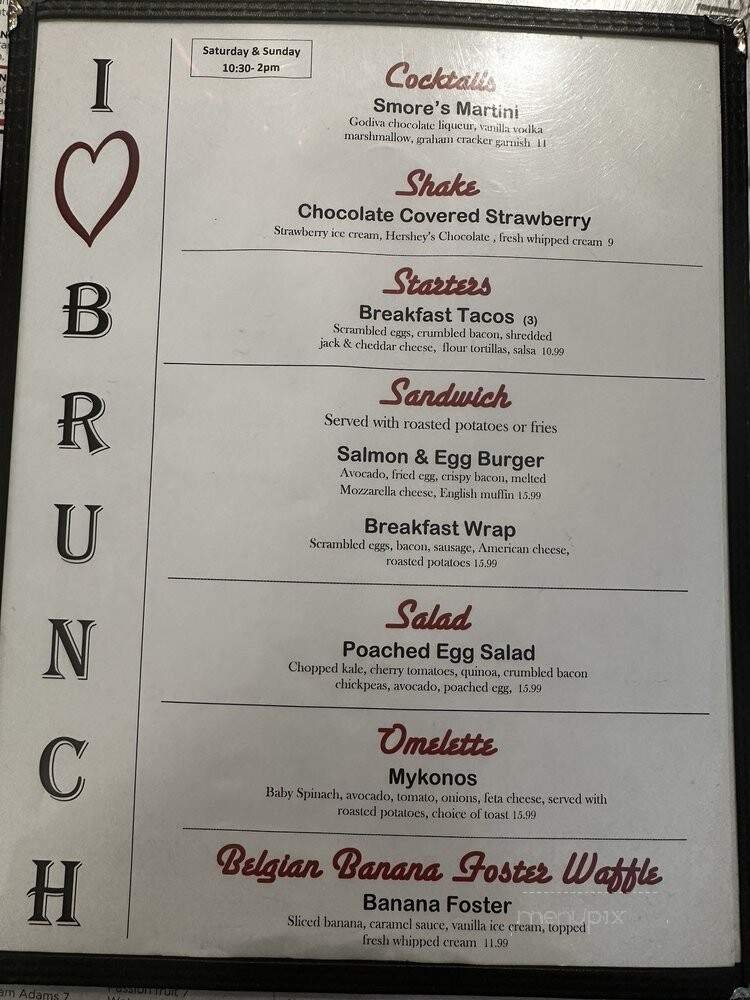 I
B
R
U
N
C
H
Saturday & Sunday
10:30- 2pm
Cocktails
Smore's Martini
Godiva chocolate liqueur, vanilla vodka
marshmallow, graham cracker garnish 11
Shake
Chocolate Covered Strawberry
Strawberry ice cream, Hershey's Chocolate , fresh whipped cream 9
Starters
Breakfast Tacos (3)
Scrambled eggs, crumbled bacon, shredded
jack & cheddar cheese, flour tortillas, salsa 10.99
Sandwich
Served with roasted potatoes or fries
Salmon & Egg Burger
Avocado, fried egg, crispy bacon, melted
Mozzarella cheese, English muffin 15.99
Breakfast Wrap
Scrambled eggs, bacon, sausage, American cheese,
roasted potatoes 15.99
Salad
Poached Egg Salad
Chopped kale, cherry tomatoes, quinoa, crumbled bacon
chickpeas, avocado, poached egg, 15.99
Omelette
Mykonos
Baby Spinach, avocado, tomato, onions, feta cheese, served with
roasted potatoes, choice of toast 15.99
Belgian Banana Foster Waffle
Banana Foster
Sliced banana, caramel sauce, vanilla ice cream, topped
fresh whipped cream 11.99
menupix
am Adams 7